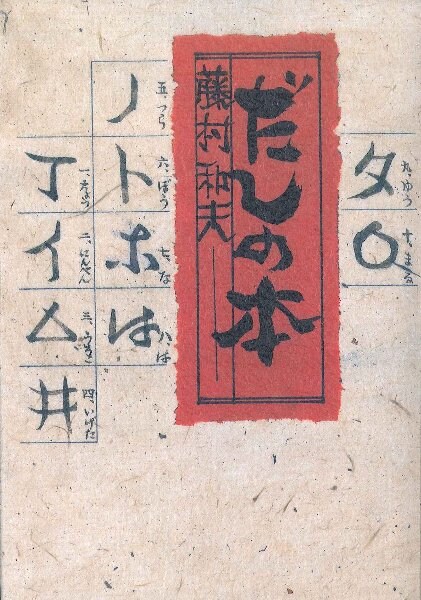 タ
九、ゆう
〇
十、まる
だしの本
藤村和夫
ノ
五、つら
ト
六、ぼう
ホ
七、な
は
八、は
丁
イ
二、にんべん
△
三、うろこ
井
四、いげた